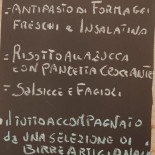 - ANTIPASTO DI FORMAGGI
FRESCHI E INSALATINA
- RISOTTO ALLA ZUCCA
CON PANCETTA CROCCANTE
- SALSICCE E FAGIOLI
IL TUTTO ACCOMPAGNATO
DA UNA SELEZIONE DI
BIRRE ARTIGIANALI